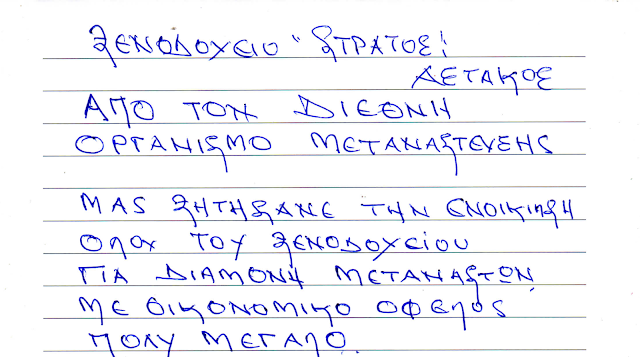 ΞΕΝΟΔΟΧΕΙΟ "ΣΤΡΑΤΟΣ"
ΑΕΤΑΚΟΣ
ΑΠΟ ΤΟΝ ΔΙΕΘΝΗ
ΟΡΓΑΝΙΣΜΟ ΜΕΤΑΝΑΣΤΕΥΣΗΣ
ΜΑΣ ΖΗΤΗΣΑΝΕ ΤΗΝ ΕΝΟΙΚΙΑΣΗ
ΟΛΟΥ ΤΟΥ ΞΕΝΟΔΟΧΕΙΟΥ
ΓΙΑ ΔΙΑΜΟΝΗ ΜΕΤΑΝΑΣΤΩΝ,
ΜΕ ΟΙΚΟΝΟΜΙΚΟ ΟΦΕΛΟΣ
ΠΟΛΥ ΜΕΓΑΛΟ.